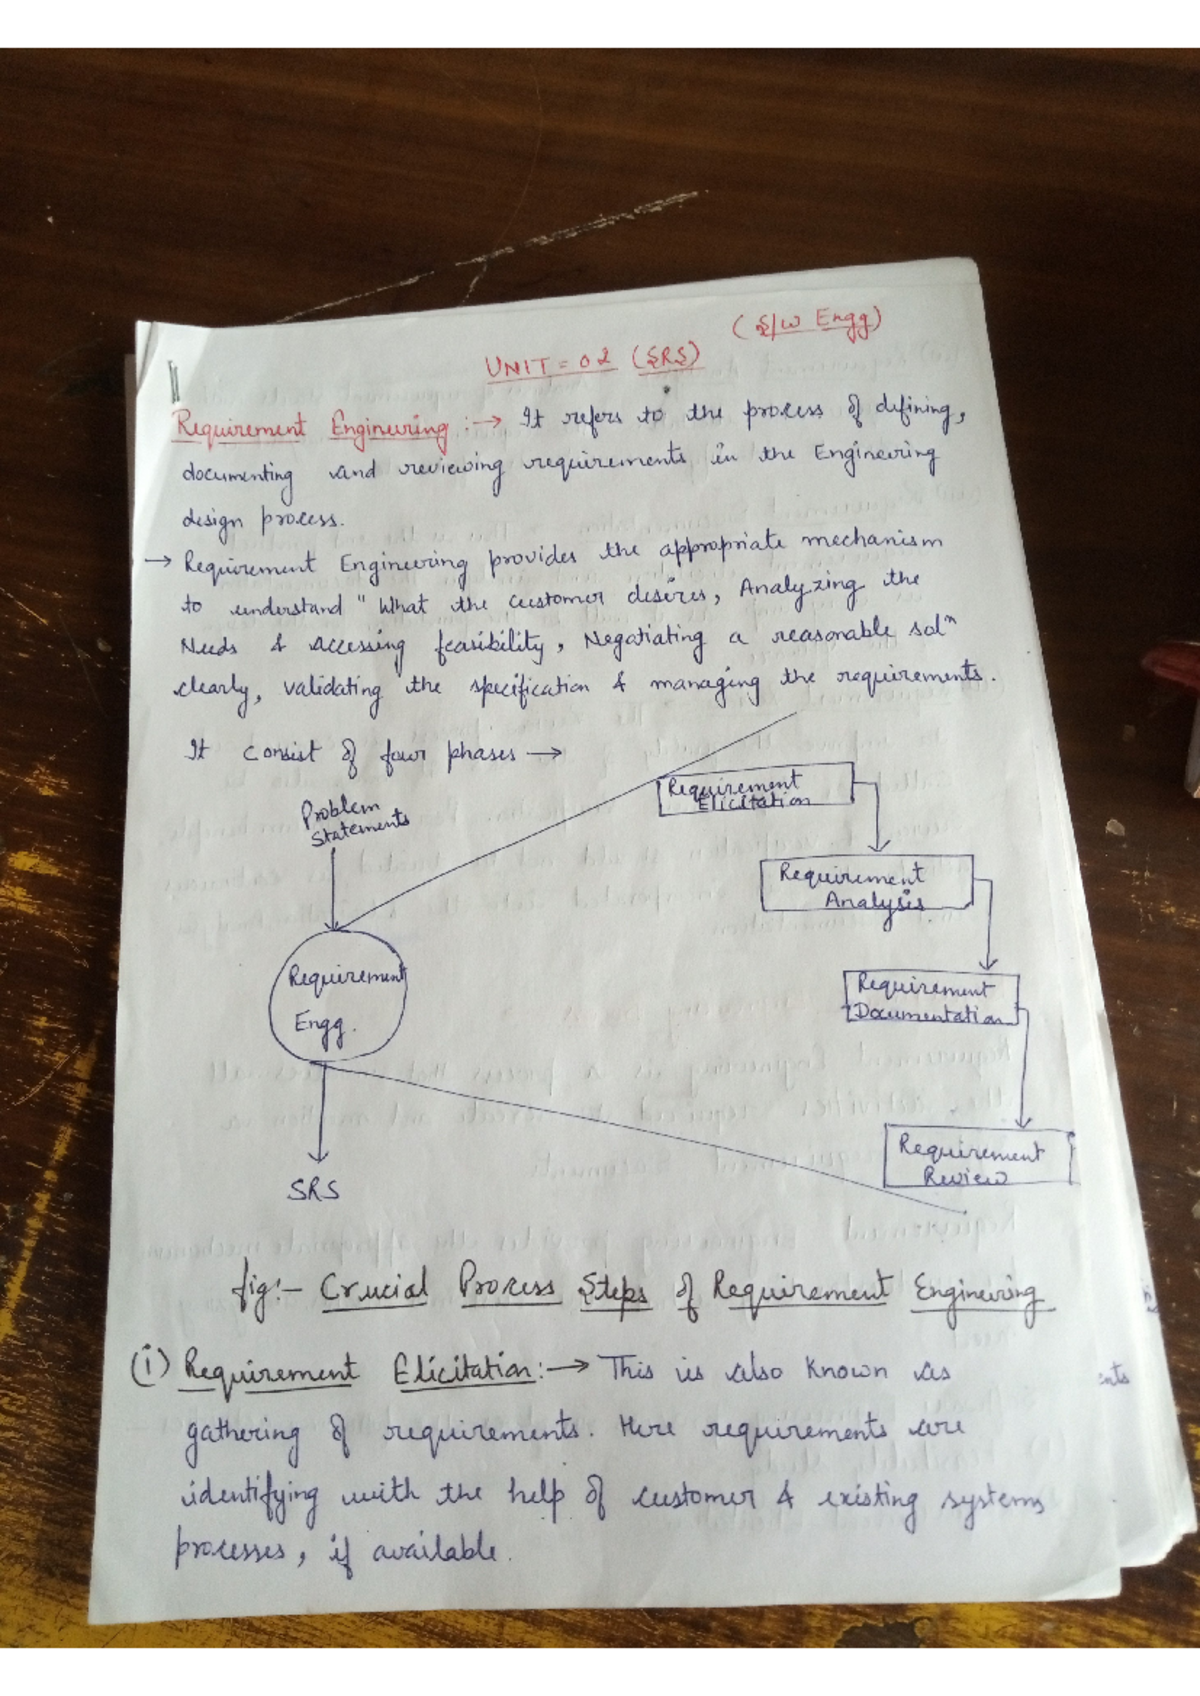 (S/W Engg)
UNIT = 02 (SRS)
Requirement Engineering :→ It refers to the process of defining,
documenting and reviewing requirements in the Engineering
design process.
→ Requirement Engineering provides the appropriate mechanism
to understand "What the customer desires, Analyzing the
Needs & accessing feasibility, Negatiating a reasonable solⁿ
clearly, validating the specification & managing the requirements.
It consist of four phases →
Problem
Statements
Requirement
Elicitation
Requirement
Analysis
Requirement
Engg.
Requirement
Documentation
Requirement
Review
SRS
fig:- Crucial Process Steps of Requirement Engineering
(i) Requirement Elicitation:→ This is also known as
gathering of requirements. Here requirements are
identifying with the help of customer & existing systems
processes, if available.